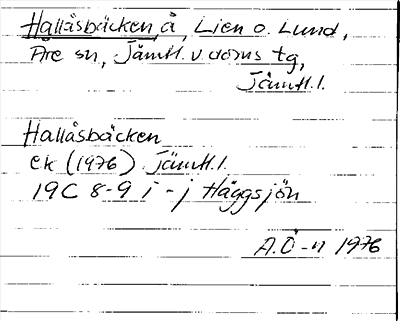 Hållåsbäcken, å, Lien o. Lund,
Åre sn, Jämtl. v. doms tg,
Jämtl. l.
Hallåsbäcken
ek (1976) Jämtl. l.
19C 8-9 i - j Häggsjön
A.Ö-n 1976